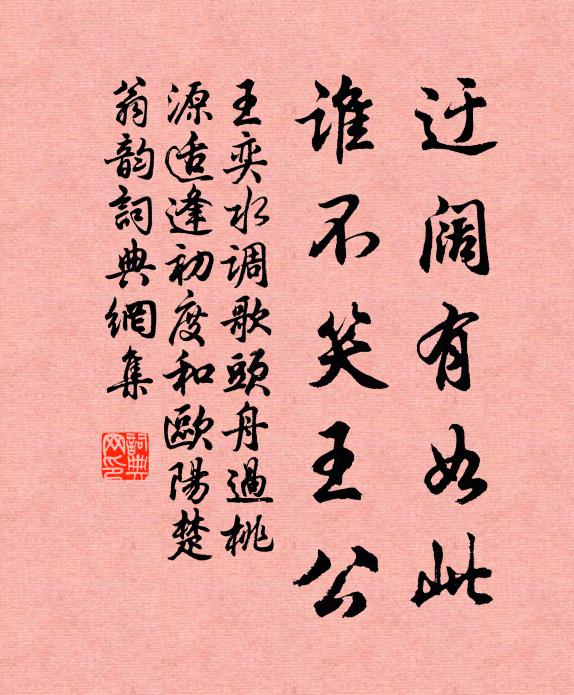 迂阔有如此
谁不笑王公
王奕水调歌頭舟過桃
源适逢初度和歐陽楚
翁韵詞典網集
詞典網印